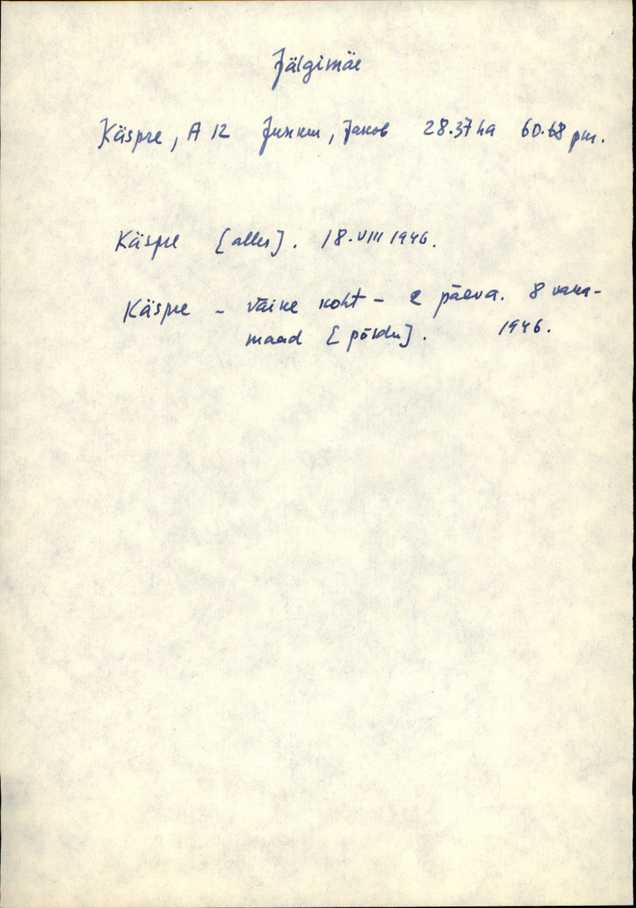 Jälgimäe
Käspre, A 12 Junkur, Jakob 28.37 ha 60.68 pm.
Käspre [alles]. 18.VIII 1946.
Käspre - väike koht - 2 päeva. 8 vaka-
maad [põldu]. 1946.